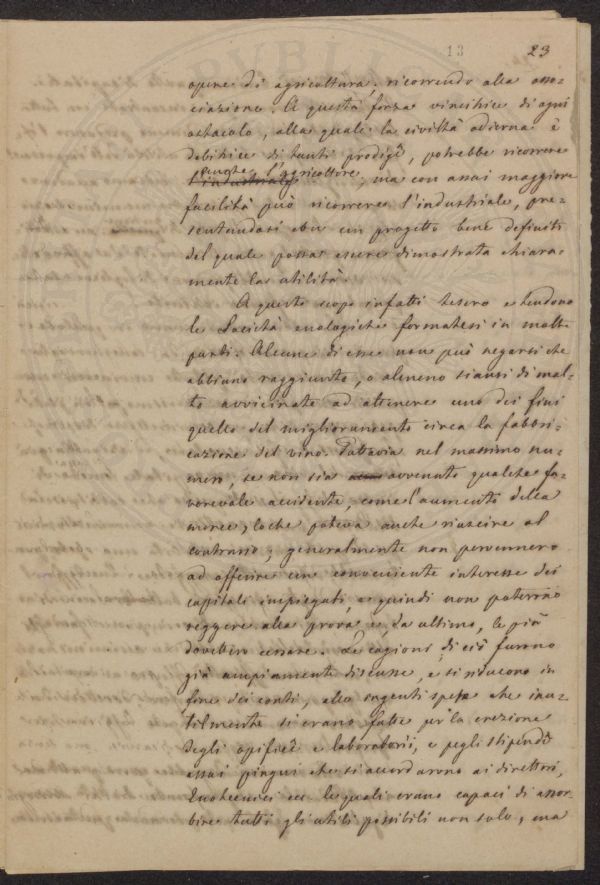 13 23
opere di agricoltura, ricorrendo alla asso-
ciazione. A questa forza vincitrice di ogni
ostacolo, alla quale la civiltà odierna è
debitrice di tanti prodigî, potrebbe ricorrere
punque l'agricoltore
l'industriale, ma con assai maggiore
facilità può ricorrere l'industriale, pre-
sentandosi con un progetto bene definito
del quale possa essere dimostrata chiara-
mente la utilità.
A questo scopo infatti tesero e tendono
le Società enologiche formatesi in molte
parti. Alcune di esse non può negarsi che
abbiano raggiunto, o almeno siansi di mol-
to avvicinate ad ottenere uno dei fini
quello del miglioramento circa la fabbri-
cazione del vino. Tuttavia nel massimo nu-
mero, se non sia avvenuto qualche fa-
vorevole accidente, come l'aumento della
merce, loche poteva anche riuscire al
contrario, generalmente non pervennero
ad offrire un conveniente interesse dei
capitali impiegati, e quindi non poterono
reggere alla prova e, da ultimo, le più
dovettero cessare. Le cagioni di ciò furono
già ampiamente discusse, e si riducono in
fine dei conti, alle ingenti spese che inu-
tilmente si erano fatte per la erezione
degli opificî e laboratorii, e pegli stipendî
assai pingui che si accordarono ai direttori,
Enotecnici ecc le quali erano capaci di assor-
bire tutti gli utili possibili non solo, ma